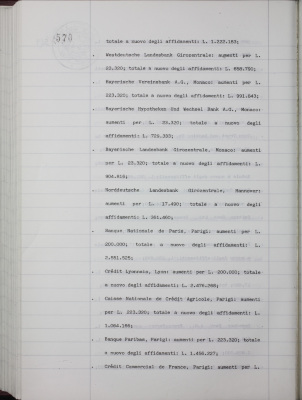 570
totale a nuovo degli affidamenti: L. 1.222.182;
. Westdeutsche Landesbank Girozentrale: aumenti per L.
22.320; totale a nuovo degli affidamenti: L. 858.701;
. Bayerische Vereinsbank A.G., Monaco: aumenti per L.
223.320; totale a nuovo degli affidamenti: L. 991.643;
. Bayerische Hypotheken Und Wechsel Bank A.G., Monaco:
aumenti per L. 22.320; totale a nuovo degli
affidamenti: L. 729.383;
. Bayerische Landesbank Girozentrale, Monaco: aumenti
per L. 23.320; totale a nuovo degli affidamenti: L.
904.616;
. Norddeutsche Landesbank Girozentrale, Hannover:
aumenti per L. 17.490; totale a nuovo degli
affidamenti: L. 381.402;
. Banque Nationale de Paris, Parigi: aumenti per L.
200.000; totale a nuovo degli affidamenti: L.
2.551.525;
. Crédit Lyonnais, Lyon: aumenti per L. 200.000; totale
a nuovo degli affidamenti: L. 2.475.298;
. Caisse Nationale de Crédit Agricole, Parigi: aumenti
per L. 223.320; totale a nuovo degli affidamenti: L.
1.264.186;
. Banque Paribas, Parigi: aumenti per L. 223.320; totale
a nuovo degli affidamenti: L. 1.456.207;
. Crédit Commercial de France, Parigi: aumenti per L.